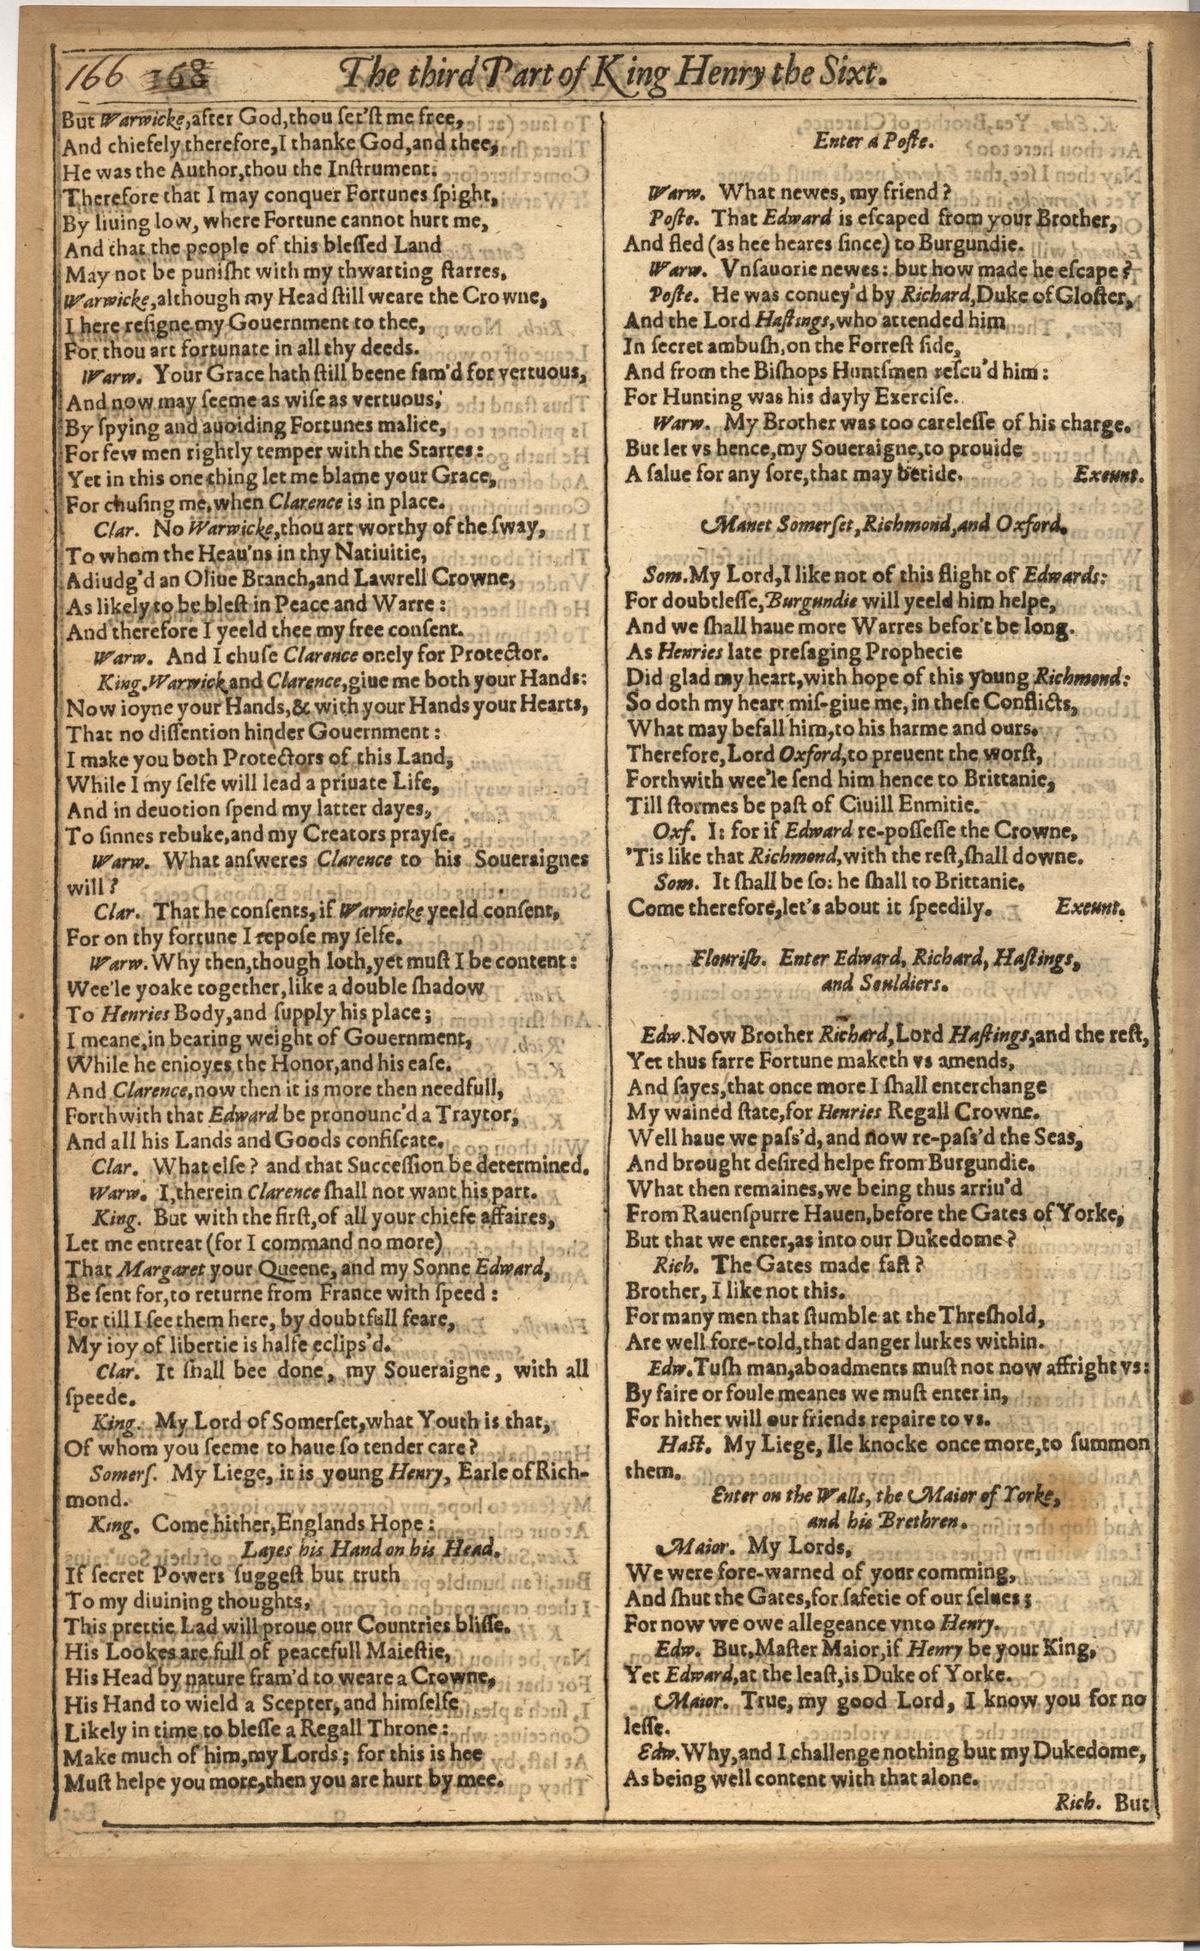 166 168 The third Part of King Henry the Sixt.
But Warwicke,after God,thou ſet'ſt me free,
And chiefely therefore,I thanke God,and thee,
He was the Author,thou the Inſtrument.
Therefore that I may conquer Fortunes ſpight,
By liuing low, where Fortune cannot hurt me,
And that the people of this bleſſed Land
May not be puniſht with my thwarting ſtarres,
Warwicke,although my Head ſtill weare the Crowne,
I here reſigne my Gouernment to thee,
For thou art fortunate in all thy deeds.
Warw. Your Grace hath ſtill beene fam'd for vertuous,
And now may ſeeme as wiſe as vertuous,
By ſpying and auoiding Fortunes malice,
For few men rightly temper with the Starres:
Yet in this one thing let me blame your Grace,
For chuſing me,when Clarence is in place.
Clar. No Warwicke,thou art worthy of the ſway,
To whom the Heau'ns in thy Natiuitie,
Adiudg'd an Oliue Branch,and Lawrell Crowne,
As likely to be bleſt in Peace and Warre:
And therefore I yeeld thee my free conſent.
Warw. And I chuſe Clarence onely for Protector.
King. Warwick and Clarence,giue me both your Hands:
Now ioyne your Hands,& with your Hands your Hearts,
That no diſſention hinder Gouernment:
I make you both Protectors of this Land,
While I my ſelfe will lead a priuate Life,
And in deuotion ſpend my latter dayes,
To ſinnes rebuke,and my Creators prayſe.
Warw. What anſweres Clarence to his Soueraignes
will?
Clar. That he conſents,if Warwicke yeeld conſent,
For on thy fortune I repoſe my ſelfe.
Warw. Why then,though loth,yet muſt I be content:
Wee'le yoake together,like a double ſhadow
To Henries Body,and ſupply his place;
I meane,in bearing weight of Gouernment,
While he enioyes the Honor,and his eaſe.
And Clarence,now then it is more then needfull,
Forthwith that Edward be pronounc'd a Traytor,
And all his Lands and Goods confiſcate.
Clar. What elſe? and that Succeſſion be determined.
Warw. I,therein Clarence ſhall not want his part.
King. But with the firſt,of all your chiefe affaires,
Let me entreat (for I command no more)
That Margaret your Queene, and my Sonne Edward,
Be ſent for,to returne from France with ſpeed:
For till I ſee them here, by doubtfull feare,
My ioy of libertie is halfe eclips'd.
Clar. It ſhall bee done, my Soueraigne, with all
ſpeede.
King. My Lord of Somerſet,what Youth is that,
Of whom you ſeeme to haue ſo tender care?
Somerſ. My Liege, it is young Henry, Earle of Rich-
mond.
King. Come hither,Englands Hope:
Layes his Hand on his Head.
If ſecret Powers ſuggeſt but truth
To my diuining thoughts,
This prettie Lad will proue our Countries bliſſe.
His Lookes are full of peacefull Maieſtie,
His Head by nature fram'd to weare a Crowne,
His Hand to wield a Scepter, and himſelfe
Likely in time to bleſſe a Regall Throne:
Make much of him,my Lords; for this is hee
Muſt helpe you more,then you are hurt by mee.
Enter a Poſte.
Warw. What newes, my friend?
Poſte. That Edward is eſcaped from your Brother,
And fled (as hee heares ſince) to Burgundie.
Warw. Vnſauorie newes: but how made he eſcape?
Poſte. He was conuey'd by Richard,Duke of Gloſter,
And the Lord Haſtings,who attended him
In ſecret ambuſh,on the Forreſt ſide,
And from the Biſhops Huntſmen reſcu'd him:
For Hunting was his dayly Exerciſe.
Warw. My Brother was too careleſſe of his charge.
But let vs hence,my Soueraigne,to prouide
A ſalue for any ſore,that may betide. Exeunt.
Manet Somerſet,Richmond,and Oxford.
Som. My Lord,I like not of this flight of Edwards:
For doubtleſſe,Burgundie will yeeld him helpe,
And we ſhall haue more Warres befor't be long.
As Henries late preſaging Prophecie
Did glad my heart,with hope of this young Richmond:
So doth my heart miſ-giue me, in theſe Conflicts,
What may befall him,to his harme and ours.
Therefore, Lord Oxford,to preuent the worſt,
Forthwith wee'le ſend him hence to Brittanie,
Till ſtormes be paſt of Ciuill Enmitie.
Oxf. I: for if Edward re-poſſeſſe the Crowne,
'Tis like that Richmond,with the reſt,ſhall downe.
Som. It ſhall be ſo: he ſhall to Brittanie.
Come therefore,let's about it ſpeedily. Exeunt.
Flouriſh. Enter Edward, Richard, Haſtings,
and Souldiers.
Edw. Now Brother Richard,Lord Haſtings,and the reſt,
Yet thus farre Fortune maketh vs amends,
And ſayes,that once more I ſhall enterchange
My wained ſtate,for Henries Regall Crowne.
Well haue we paſs'd, and now re-paſs'd the Seas,
And brought deſired helpe from Burgundie.
What then remaines,we being thus arriu'd
From Rauenſpurre Hauen,before the Gates of Yorke,
But that we enter,as into our Dukedome?
Rich. The Gates made faſt?
Brother, I like not this.
For many men that ſtumble at the Threſhold,
Are well fore-told,that danger lurkes within.
Edw. Tuſh man,aboadments muſt not now affright vs:
By faire or foule meanes we muſt enter in,
For hither will our friends repaire to vs.
Haſt. My Liege, Ile knocke once more,to ſummon
them.
Enter on the Walls, the Maior of Yorke,
and his Brethren.
Maior. My Lords,
We were fore-warned of your comming,
And ſhut the Gates,for ſafetie of our ſelues;
For now we owe allegeance vnto Henry.
Edw. But,Maſter Maior,if Henry be your King,
Yet Edward,at the leaſt,is Duke of Yorke.
Maior. True, my good Lord, I know you for no
leſſe.
Edw. Why,and I challenge nothing but my Dukedome,
As being well content with that alone.
Rich. But